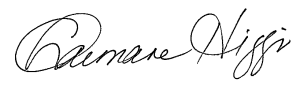 Carmane Higgi